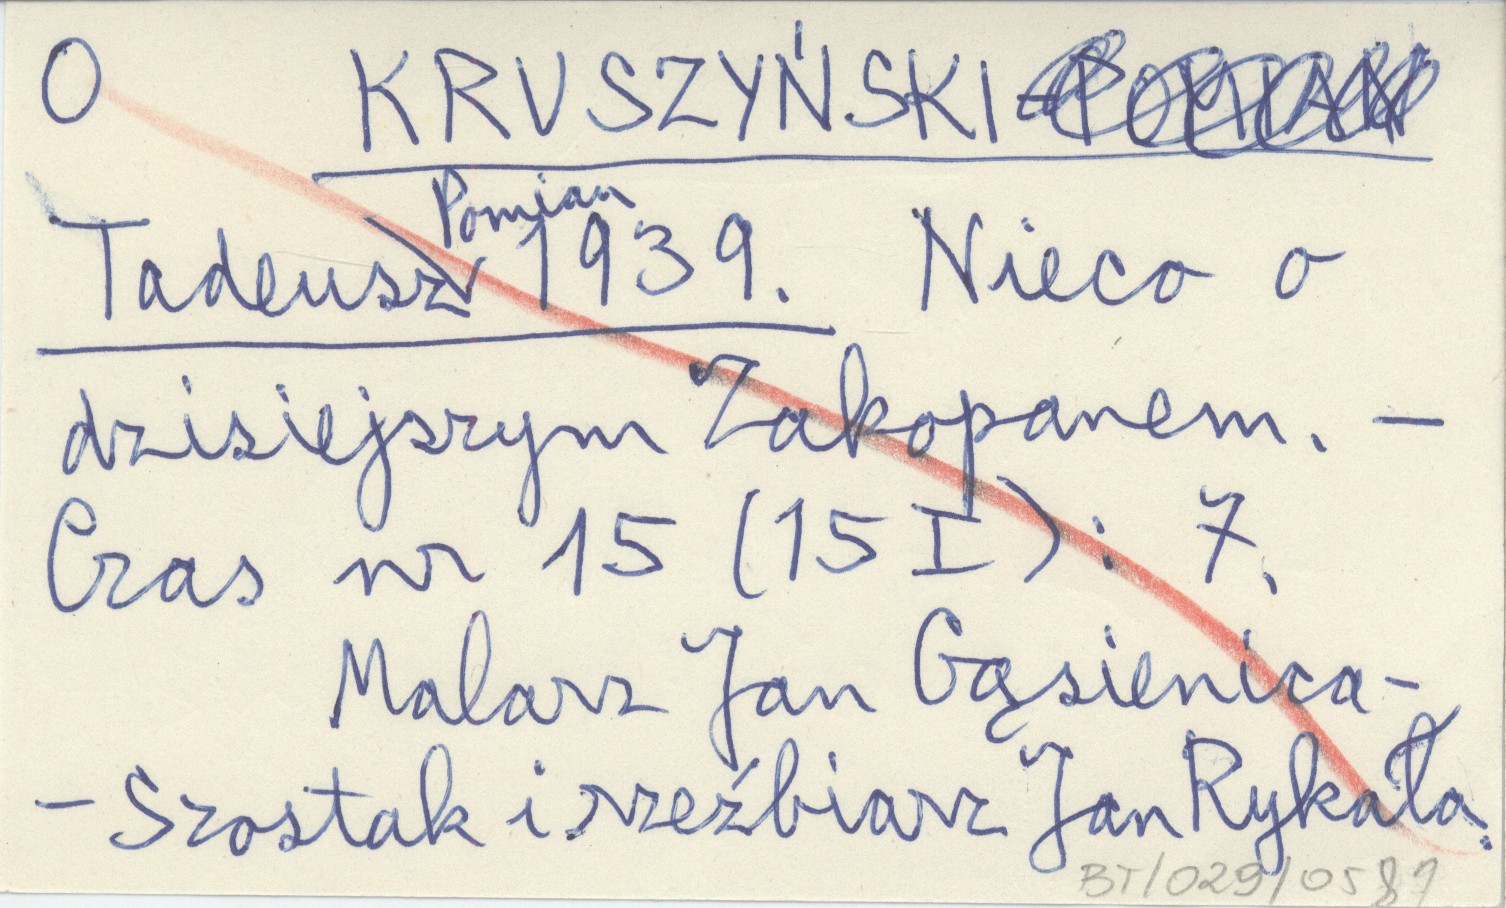 O KRUSZYŃSKI-POMIAN
Pomian
Tadeusz 1939. Nieco o
dzisiejszym Zakopanem. –
Czas nr 15 (15 I): 7.
Malarz Jan Gąsienica-
-Szostak i rzeźbiarz Jan Rykała.
BT/029/0587